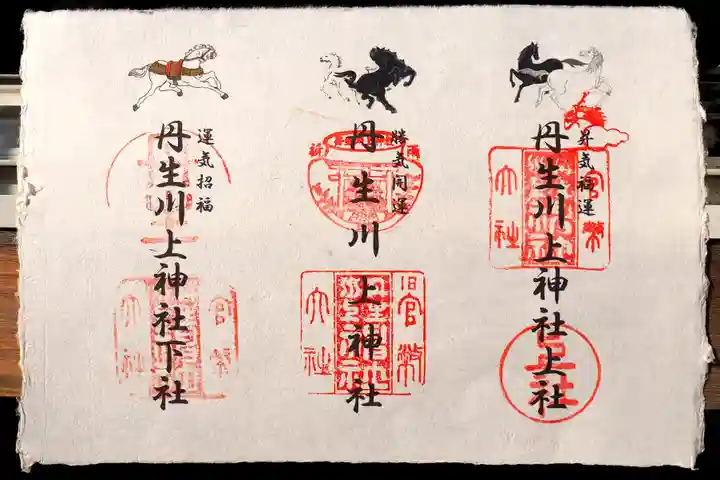 昇気福運
丹生川上神社上社
官幣
大社
勝気開運
丹生川上神社
旧官幣
大社
運気招福
丹生川上神社下社
官幣
大社